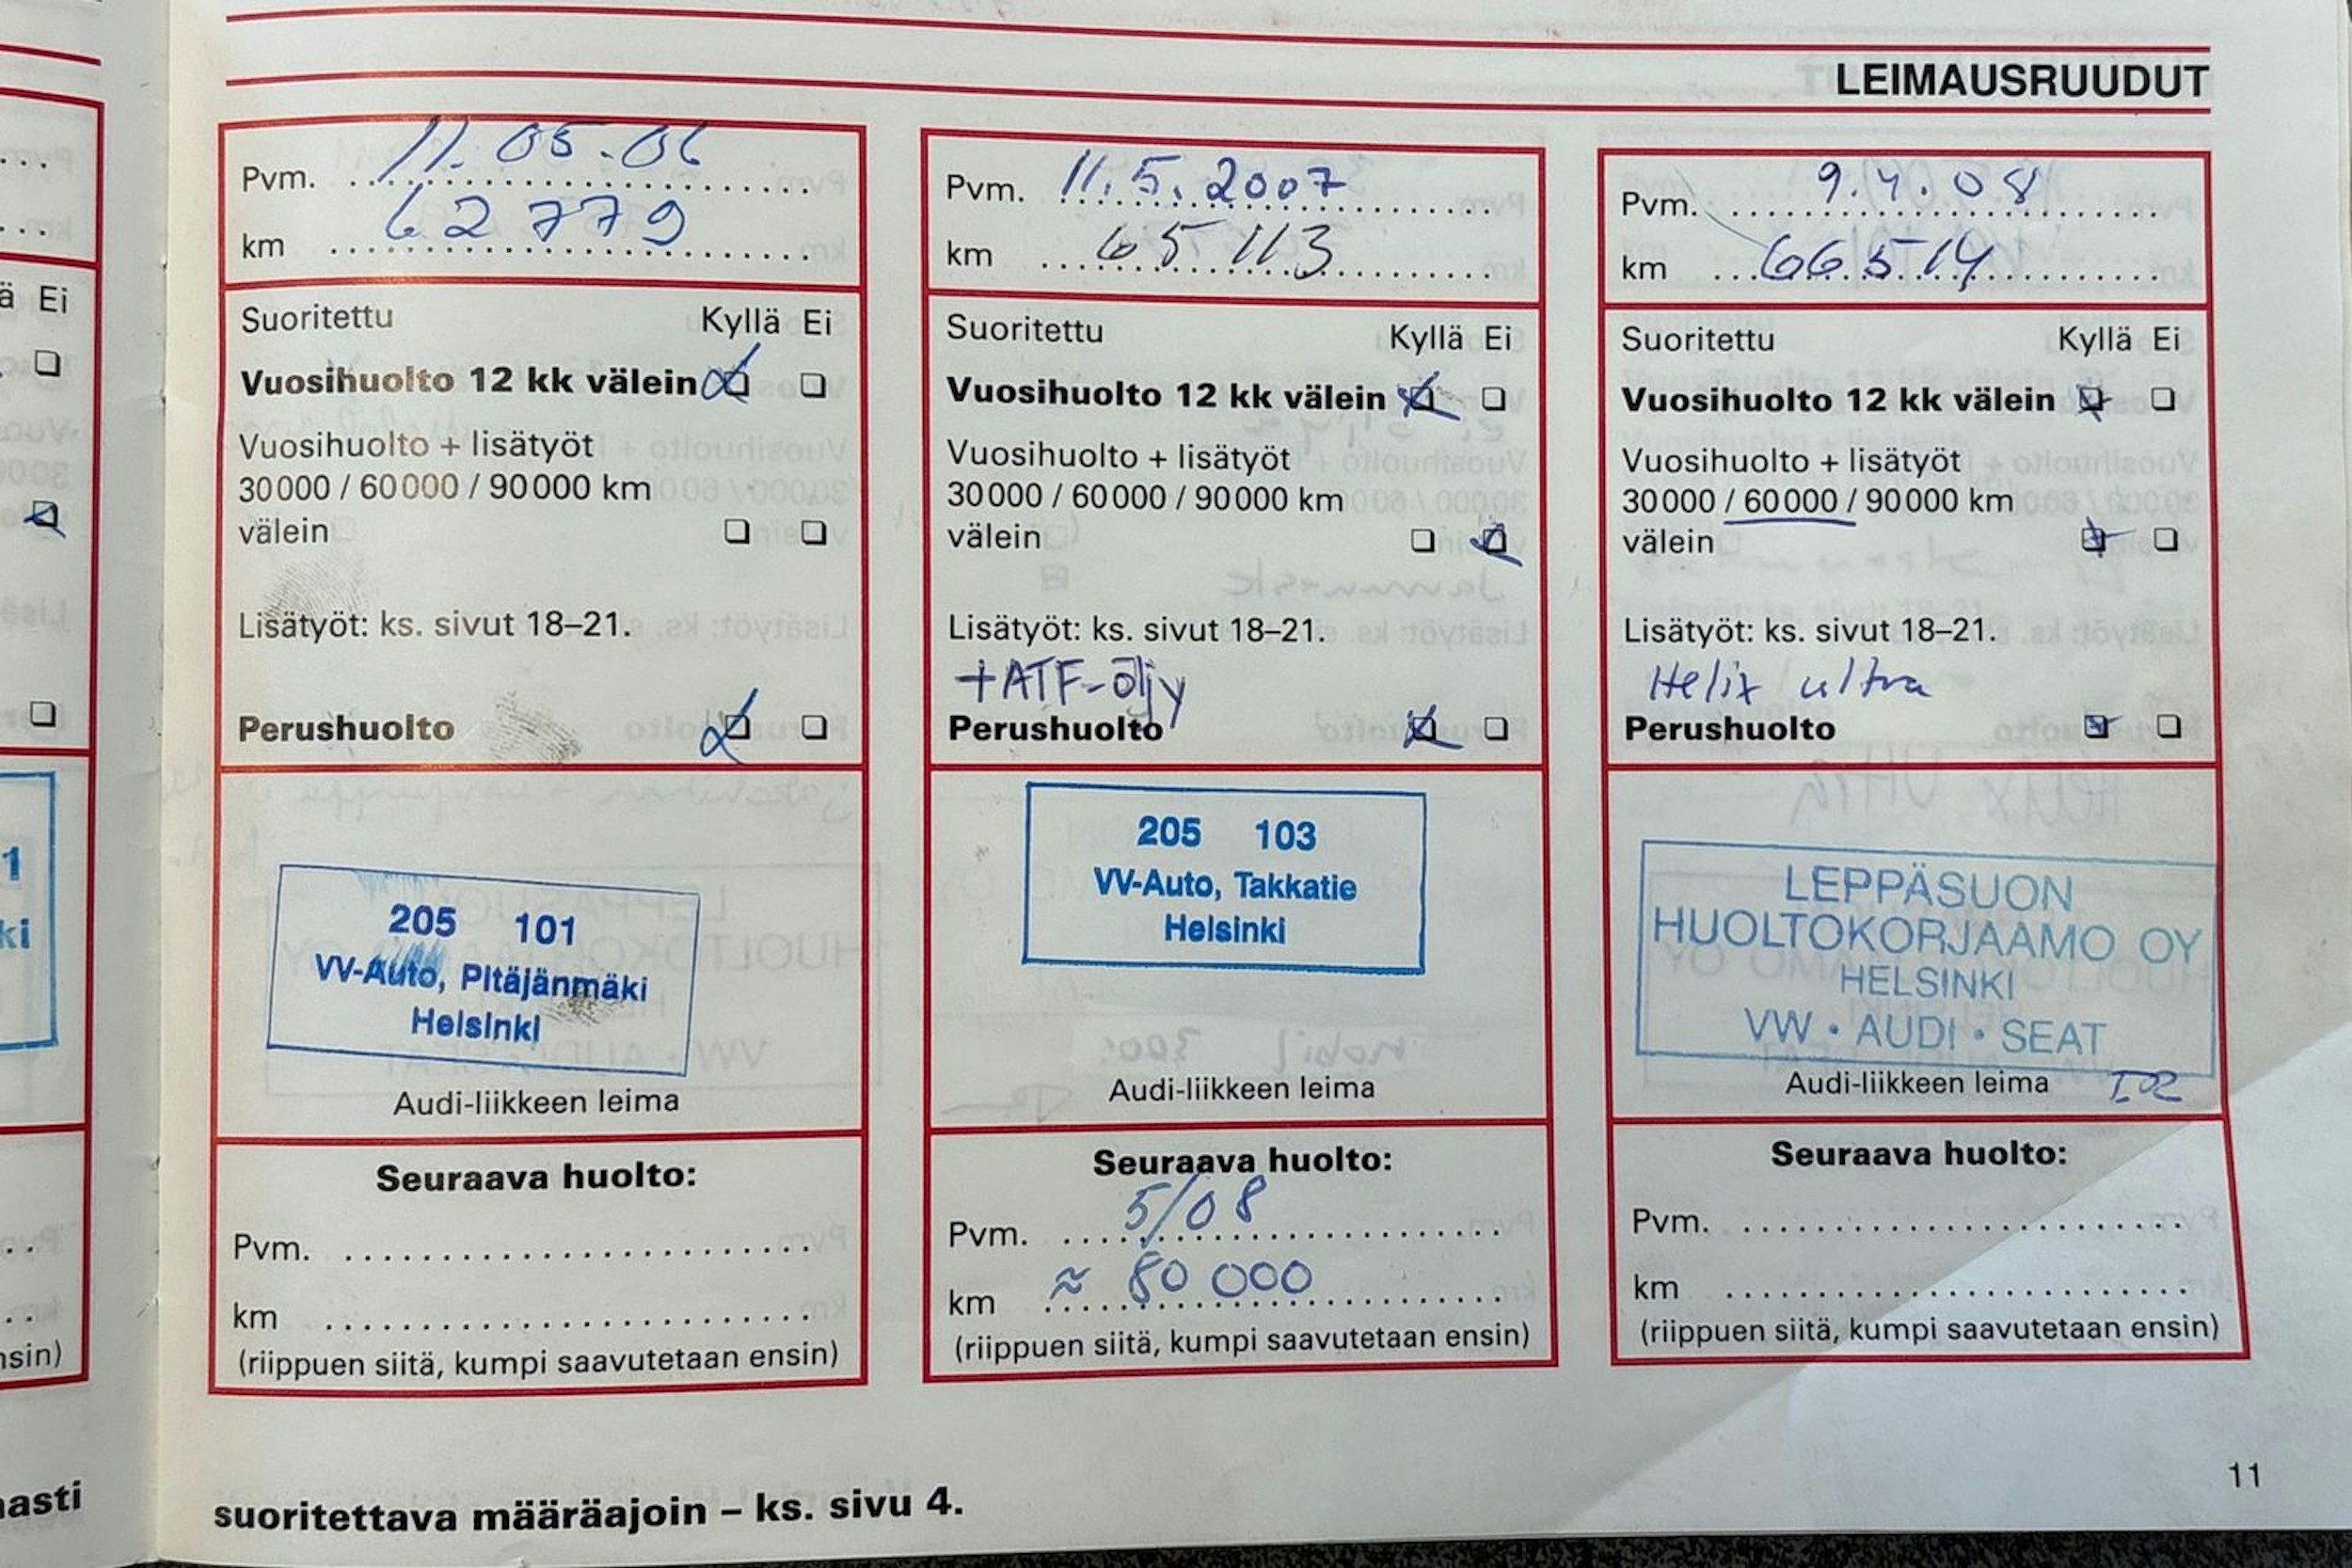 LEIMAUSRUUDUT
Pvm. 11.05.06
km 62779
Suoritettu Kyllä Ei
Vuosihuolto 12 kk välein
Vuosihuolto + lisätyöt
30 000 / 60 000 / 90 000 km
välein
Lisätyöt: ks. sivut 18–21.
Perushuolto
205 101
VV-Auto, Pitäjänmäki
Helsinki
Audi-liikkeen leima
Seuraava huolto:
Pvm.
km
(riippuen siitä, kumpi saavutetaan ensin)
Pvm. 11.5.2007
km 65 113
Suoritettu Kyllä Ei
Vuosihuolto 12 kk välein
Vuosihuolto + lisätyöt
30 000 / 60 000 / 90 000 km
välein
Lisätyöt: ks. sivut 18–21.
+ATF-öljy
Perushuolto
205 103
VV-Auto, Takkatie
Helsinki
Audi-liikkeen leima
Seuraava huolto:
Pvm. 5/08
km ≈ 80 000
(riippuen siitä, kumpi saavutetaan ensin)
Pvm. 9.4.08
km 66514
Suoritettu Kyllä Ei
Vuosihuolto 12 kk välein
Vuosihuolto + lisätyöt
30 000 / 60 000 / 90 000 km
välein
Lisätyöt: ks. sivut 18–21.
Helix ultra
Perushuolto
LEPPÄSUON
HUOLTOKORJAAMO OY
HELSINKI
VW • AUDI • SEAT
Audi-liikkeen leima
Seuraava huolto:
Pvm.
km
(riippuen siitä, kumpi saavutetaan ensin)
suoritettava määräajoin – ks. sivu 4.
11